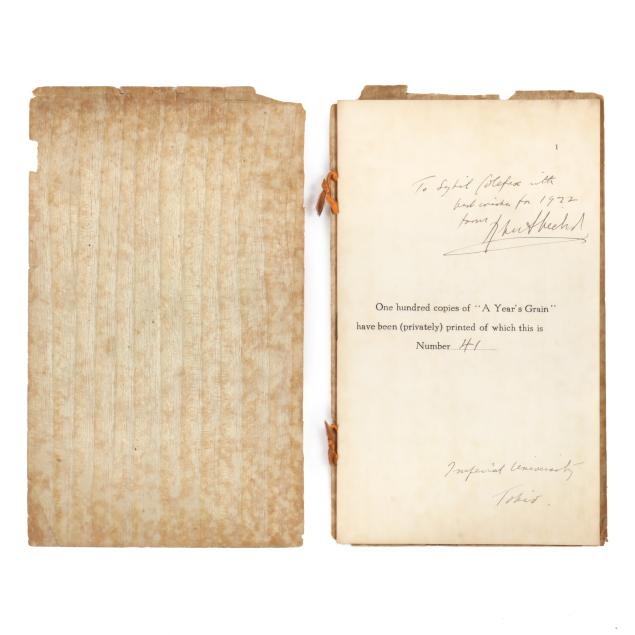 1
To Sybil Colefax with
best wishes for 1922
from
One hundred copies of "A Year's Grain"
have been (privately) printed of which this is
Number 41
Imperial University
Tokio.